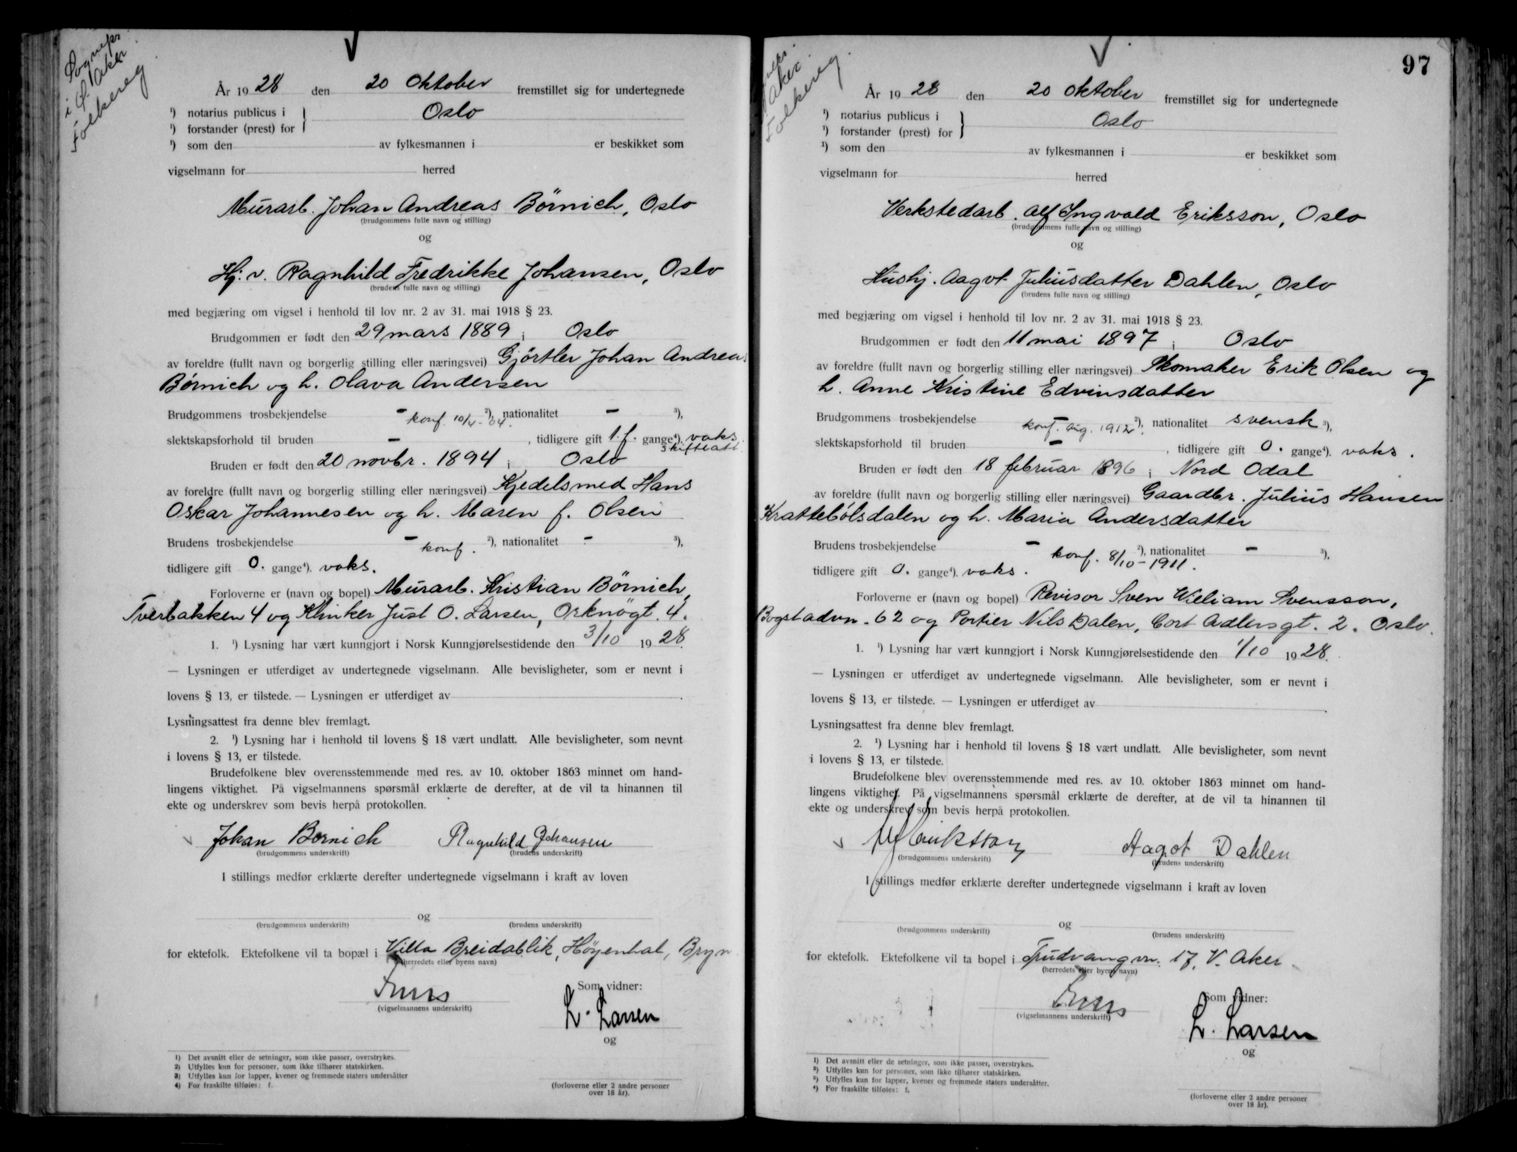 Sognepr.
i Ø. Aker
Folkereg.
År 1928 den 20 oktober fremstillet sig for undertegnede
¹) notarius publicus i } Oslo
¹) forstander (prest) for
¹) som den av fylkesmannen i er beskikket som
vigselmann for herred
Murarb. Johan Andreas Börnich, Oslo
(brudgommens fulle navn og stilling)
og
Hj. v. Ragnhild Fredrikke Johansen, Oslo
(brudens fulle navn og stilling)
med begjæring om vigsel i henhold til lov nr. 2 av 31. mai 1918 § 23.
Brudgommen er født den 29 mars 1889 i Oslo
av foreldre (fullt navn og borgerlig stilling eller næringsvei) Gjörtler Johan Andreas
Börnich og h. Olava Andersen
Brudgommens trosbekjendelse - konf. 10/4-04. ²), nationalitet - ³),
slektskapsforhold til bruden - , tidligere gift 1 f. gange⁴). vaks.
skifteatt.
Bruden er født den 20 novbr. 1894 i Oslo
av foreldre (fullt navn og borgerlig stilling eller næringsvei) Kjedelsmed Hans
Oskar Johannesen og h. Maren f. Olsen
Brudens trosbekjendelse - konf. ²), nationalitet - ³),
tidligere gift 0. gange⁴). vaks.
Forloverne er (navn og bopel) Murarb. Kristian Börnich,
Tverbakken 4 og Klinker Just O. Larsen, Orknögt. 4.
1. ¹) Lysning har vært kunngjort i Norsk Kunngjørelsestidende den 3/10 1928.
— Lysningen er utferdiget av undertegnede vigselmann. Alle bevisligheter, som er nevnt i
lovens § 13, er tilstede. — Lysningen er utferdiget av .
Lysningsattest fra denne blev fremlagt.
2. ¹) Lysning har i henhold til lovens § 18 vært undlatt. Alle bevisligheter, som nevnt
i lovens § 13, er tilstede.
Brudefolkene blev overensstemmende med res. av 10. oktober 1863 minnet om hand-
lingens viktighet. På vigselmannens spørsmål erklærte de derefter, at de vil ta hinannen til
ekte og underskrev som bevis herpå protokollen.
Johan Bornich Ragnhild Johansen
(brudgommens underskrift) (brudens underskrift)
I stillings medfør erklærte derefter undertegnede vigselmann i kraft av loven
og
(brudgommens underskrift) (brudens underskrift)
for ektefolk. Ektefolkene vil ta bopæl i Villa Breidablik, Höyenhal, Bryn
(herredets eller byens navn)
(vigselmannens underskrift)
Som vidner:
L. Larsen
og
(forloverne eller 2 andre personer
over 18 år).
1) Det avsnitt eller de setninger, som ikke passer, overstrykes.
2) Utfylles kun for personer, som ikke tilhører statskirken.
3) Utfylles kun for lapper, kvener og fremmede staters undersåtter
4) For fraskilte tilføies: f.
97
Aker.
Folkereg.
År 1928 den 20 oktober fremstillet sig for undertegnede
¹) notarius publicus i } Oslo
¹) forstander (prest) for
¹) som den av fylkesmannen i er beskikket som
vigselmann for herred
Verkstedarb. Alf Ingvald Eriksson, Oslo
(brudgommens fulle navn og stilling)
og
Hushj. Aagot Juliusdatter Dahlen, Oslo
(brudens fulle navn og stilling)
med begjæring om vigsel i henhold til lov nr. 2 av 31. mai 1918 § 23.
Brudgommen er født den 11 mai 1897 i Oslo
av foreldre (fullt navn og borgerlig stilling eller næringsvei) Skomaker Erik Olsen og
h. Anne Kristine Edvinsdatter
Brudgommens trosbekjendelse - konf. aug. 1912 ²), nationalitet svensk ³),
slektskapsforhold til bruden - , tidligere gift 0. gange⁴). vaks.
Bruden er født den 18 februar 1896 i Nord Odal
av foreldre (fullt navn og borgerlig stilling eller næringsvei) Gaardbr. Julius Hansen
Krattebölsdalen og h. Maria Andersdatter
Brudens trosbekjendelse - konf. 8/10-1911. ²), nationalitet - ³),
tidligere gift 0. gange⁴). vaks.
Forloverne er (navn og bopel) Revisor Sven William Svensson,
Bogstadvn. 62 og Portier Nils Dalen, Cort Adlersgt. 2. Oslo.
1. ¹) Lysning har vært kunngjort i Norsk Kunngjørelsestidende den 1/10 1928.
— Lysningen er utferdiget av undertegnede vigselmann. Alle bevisligheter, som er nevnt i
lovens § 13, er tilstede. — Lysningen er utferdiget av .
Lysningsattest fra denne blev fremlagt.
2. ¹) Lysning har i henhold til lovens § 18 vært undlatt. Alle bevisligheter, som nevnt
i lovens § 13, er tilstede.
Brudefolkene blev overensstemmende med res. av 10. oktober 1863 minnet om hand-
lingens viktighet. På vigselmannens spørsmål erklærte de derefter, at de vil ta hinannen til
ekte og underskrev som bevis herpå protokollen.
Alf Eriksson Aagot Dahlen
(brudgommens underskrift) (brudens underskrift)
I stillings medfør erklærte derefter undertegnede vigselmann i kraft av loven
og
(brudgommens underskrift) (brudens underskrift)
for ektefolk. Ektefolkene vil ta bopel i Trudvangvn. 17, V. Aker
(herredets eller byens navn)
(vigselmannens underskrift)
Som vidner:
L. Larsen
og
(forloverne eller 2 andre personer
over 18 år).
¹) Det avsnitt eller de setninger, som ikke passer, overstrykes.
²) Utfylles kun for personer, som ikke tilhører statskirken.
³) Utfylles kun for lapper, kvener og fremmede staters undersåtter.
⁴) For fraskilte tilføies: f.